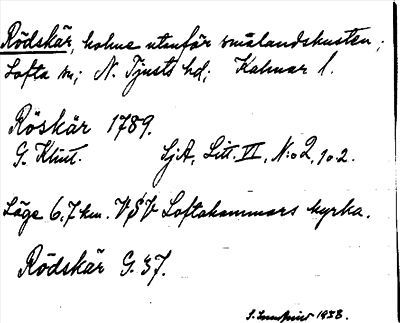 Rödskär, holme utanför smålandskusten;
Lofta sn; N. Tjusts hd; Kalmar l.
Röskär 1789.
G. Klint. SjA, Litt. VI, N:o 2, 102.
Läge 6,7 km. VSV Loftahammars kyrka.
Rödskär G. 37.
1938.